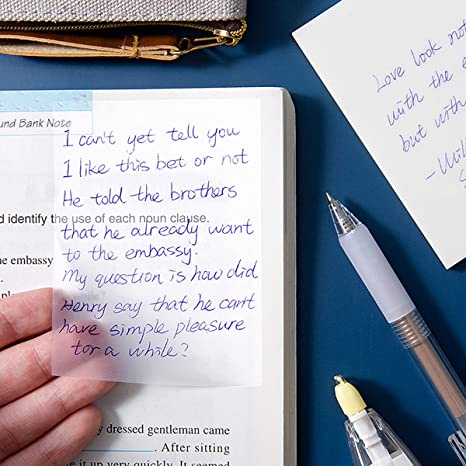 und Bank Note
I can't yet tell you
I like this bet or not
He told the brothers
d identify the use of each noun clause.
that he already want
he embassy
to the embassy.
My question is how did
Henry say that he can't
have simple pleasure
for a while?
y dressed gentleman came
. After sitting
e it up very quickly. It seemed
Love look not
with the e
but with
- Wil